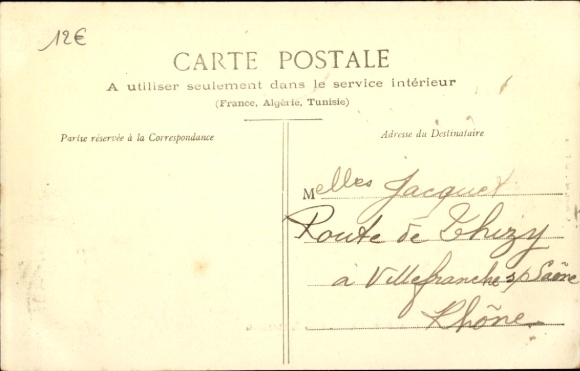 12€
CARTE POSTALE
A utiliser seulement dans le service intérieur
(France, Algérie, Tunisie)
Partie réservée à la Correspondance
Adresse du Destinataire
Melles Jacquet
Route de Thizy
à Villefranche s/ Saône
Rhône